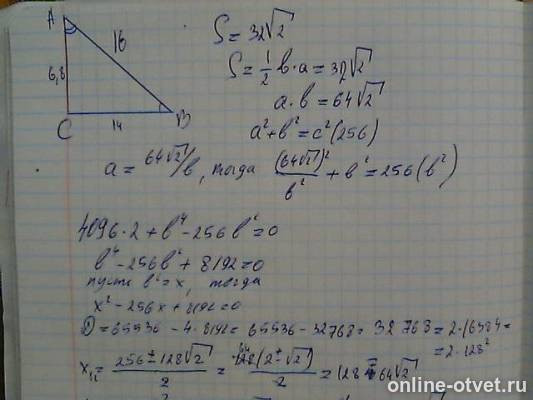 A
16
6,8
C
14
B
S = 32√2
S = 1/2 b·a = 32√2
a·b = 64√2
a² + b² = c² (256)
a = 64√2/b, тогда (64√2)²/b² + b² = 256 (b²)
4096·2 + b⁴ - 256b² = 0
b⁴ - 256b² + 8192 = 0
пусть b² = x, тогда
x² - 256x + 8192 = 0
D = 65536 - 4·8192 = 65536 - 32768 = 32768 = 2·16384 =
= 2·128²
x₁,₂ = (256 ± 128√2)/2 = 128(2 ± √2)/2 = 128 ± 64√2
online-otvet.ru